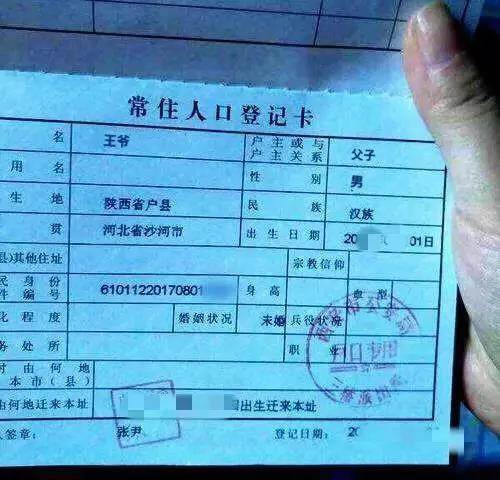 常住人口登记卡
名 王爷 户主或与户主关系 父子
用名 性别 男
生地 陕西省户县 民族 汉族
贯 河北省沙河市 出生日期 20 01日
县)其他住址 宗教信仰
民身份件编号 61011220170801 身高 血型
化程度 婚姻状况 未婚 兵役状况
务处所 职业
时由何地本市(县)
由何地迁来本址 出生迁来本址
人签章: 张尹 登记日期: 20